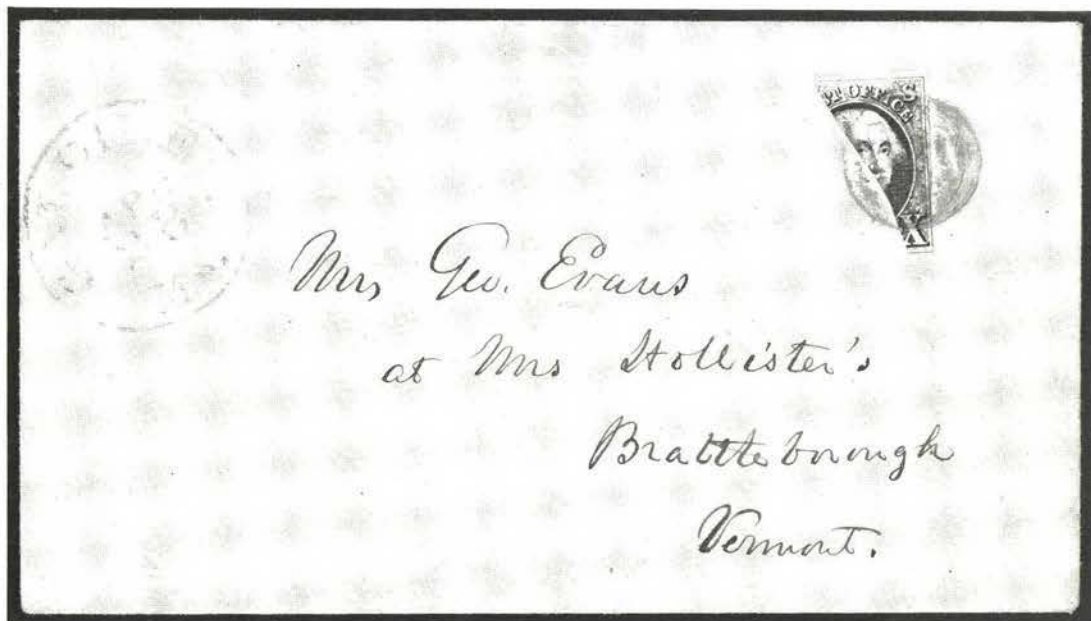 ST OFFICE
S
X
Mrs Geo. Evans
at Mrs Hollister's
Brattleborough
Vermont.